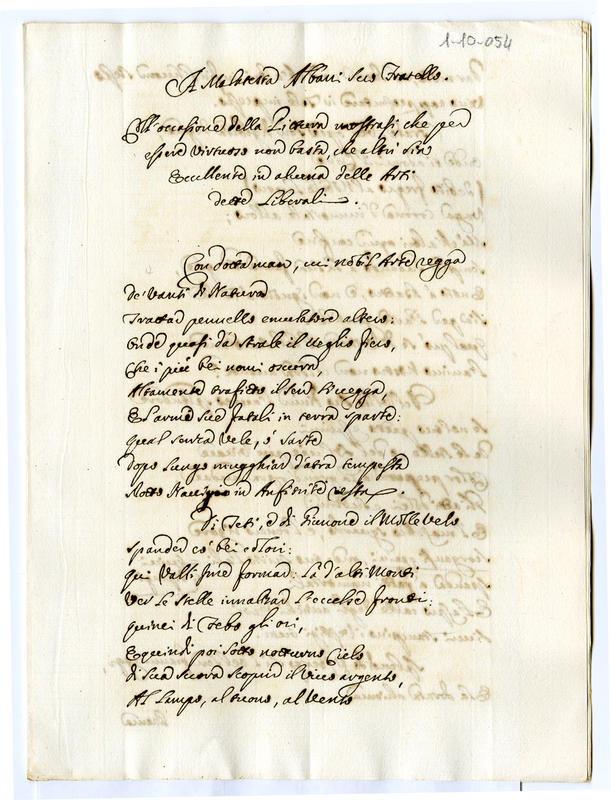 1-10-054
A Malatesta Albani suo Fratello.
All' occasione della Pittura mostrasi, che per
essere Virtuoso non basta, che altri sia
Eccellente in alcuna delle Arti
dette Liberali.
Con dotta man, cui nobil Arte regga
de' Vanti di Natura
Trattad pennello emulatore altero:
Onde quasi da strale il Veglio fiero,
Che i più bei nomi oscura,
Altamente trafitto il sen si vegga,
E l'arme sue fatali in terra sparte:
qual senza Vele, o sarte
dopo lungo mugghiar d'atra tempesta
Rotto Naviglio in Anfitrite resta.
Di Teti, e di Giunone il Molle velo
spanded co' bei colori:
qui Valli ime formad: là d'alti Monti
Ver le stelle innalzad l'eccelse fronti:
quinci di Febo gli ori,
E quindi poi sotto notturno Cielo
di sua suora scoprid il vivo argento,
Al lampo, al tuono, al Vento